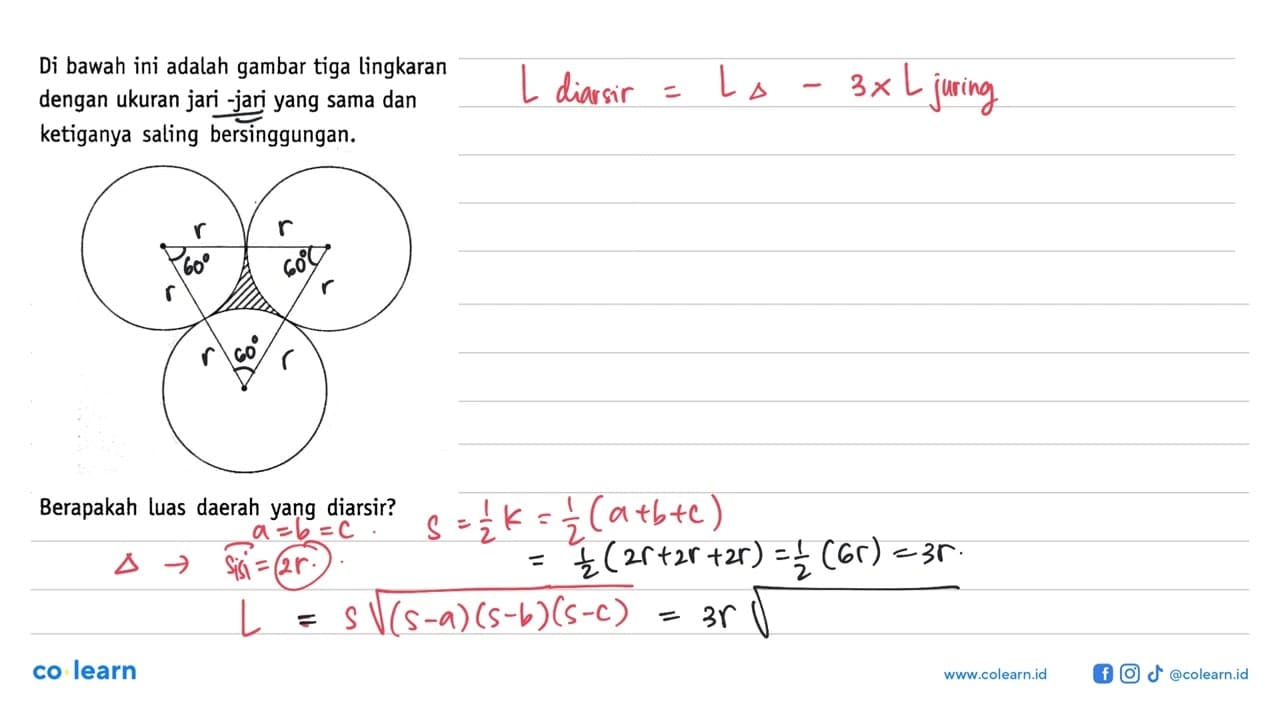 Di bawah ini adalah gambar tiga lingkaran
dengan ukuran jari -jari yang sama dan
ketiganya saling bersinggungan.
L diarsir = L△ - 3 x L juring
r r
60° 60°
r r
r 60° r
Berapakah luas daerah yang diarsir?
a = b = c . s = 1/2 k = 1/2 (a+b+c)
△ → sisi = 2r. = 1/2 (2r+2r+2r) = 1/2 (6r) = 3r.
L = s√(s-a)(s-b)(s-c) = 3r√
co learn
www.colearn.id
@colearn.id